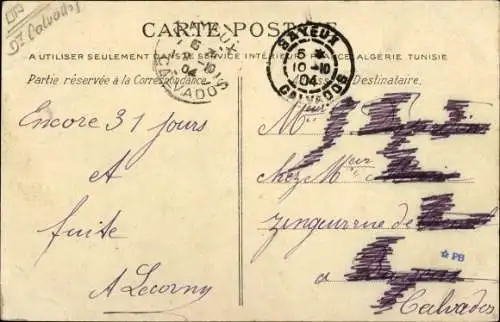 Dt Calvados
CARTE POSTALE
A UTILISER SEULEMENT DANS LE SERVICE INTÉRIEUR FRANCE ALGERIE TUNISIE
Partie réservée à la Correspondance
Adresse du Destinataire.
BAYEUX
5 *
10
04
CALVADOS
BAYEUX
5
10
04
CALVADOS
Encore 31 jours
A
fuite
A Lecorny
Mr
chez Mr
Zingueur rue de
a
Calvados
PB